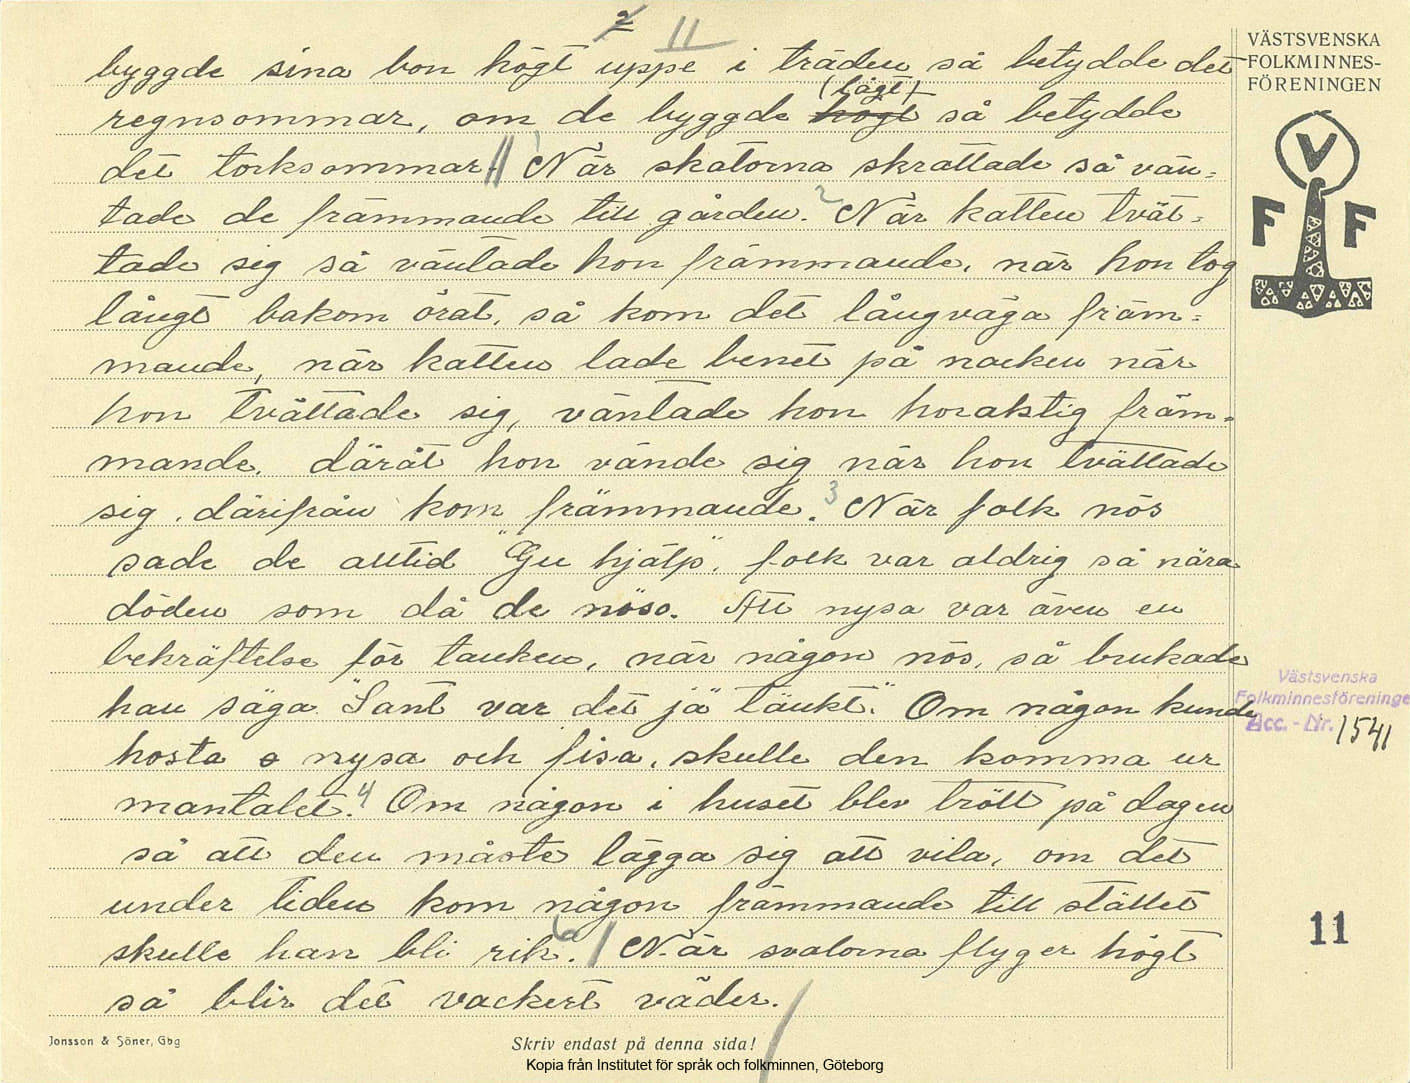 2 11
byggde sina bon högt uppe i träden så betydde det
regnsommar, om de byggde högt (lågt) så betydde
det torksommar. 1 När skatorna skrattade så vän=
tade de främmande till gården. 2 När katten tvät=
tade sig så väntade hon främmande, när hon tog
långt bakom örat, så kom det långväga främ=
mande, när katten lade benet på nacken när
hon tvättade sig, väntade hon horaktig främ=
mande, däråt hon vände sig när hon tvättade
sig, därifrån kom främmande. 3 När folk nös
sade de alltid "Gu hjälp", folk var aldrig så nära
döden som då de nöso. Att nysa var även en
bekräftelse för tanken, när någon nös, så brukade
han säga "Sant var det jä tänkt." Om någon kunde
hosta o nysa och fisa, skulle den komma ur
mantalet. 4 Om någon i huset blev trött på dagen
så att den måste lägga sig att vila, om det
under tiden kom någon främmande till stället
skulle han bli rik. 6 När svalorna flyger högt
så blir det vackert väder.
VÄSTSVENSKA
FOLKMINNES-
FÖRENINGEN
V
F F
Västsvenska
Folkminnesföreninge
Acc.-Nr. 1541
11
Jonsson & Söner, Gbg
Skriv endast på denna sida!
Kopia från Institutet för språk och folkminnen, Göteborg